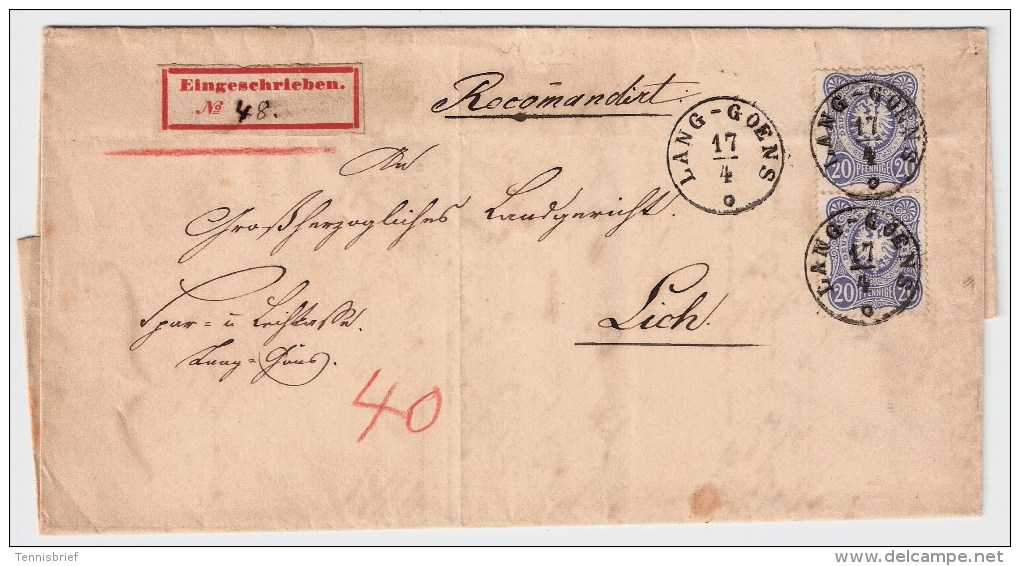 Eingeschrieben.
№ 48.
Recomandirt.
LANG-GOENS
17
4
LANG-GOENS
17
4
20 PFENNIGE 20
LANG-GOENS
17
4
20 PFENNIGE 20
An
Großherzogliches Landgericht.
Lich.
Spar- u Leihkasse.
Lang-Göns.
40
Tennisbrief
delcampe.net